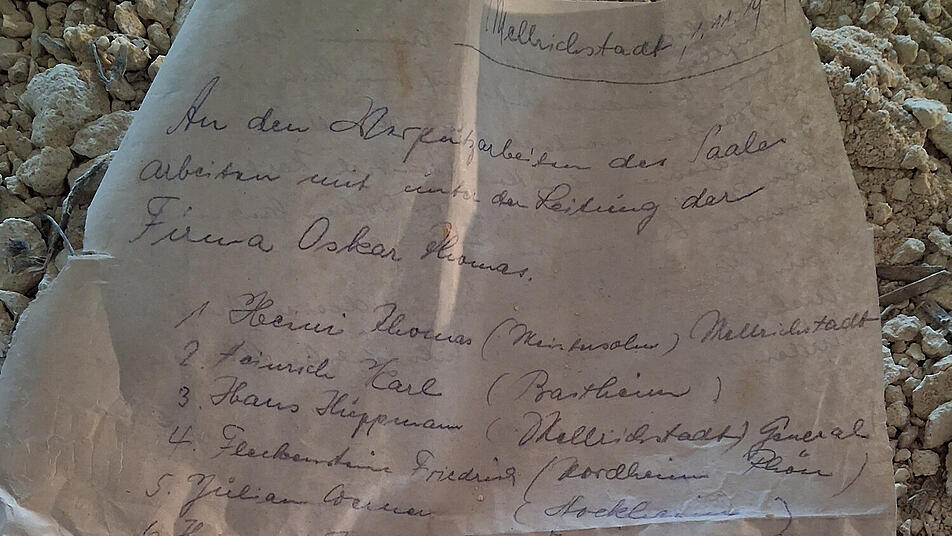 Mellrichstadt, 1.11.19
An den Verputzarbeiten des Saales
arbeiten mit unter der Leitung der
Firma Oskar Thomas.
1 Heini Thomas (Meistersohn) Mellrichstadt
2. Heinrich Karl (Bastheim)
3. Hans Hüppmann (Mellrichstadt) General
4. Fleckenstein Friedrich (Nordheim Rhön)
5. Julian Werner (Stockheim)
6